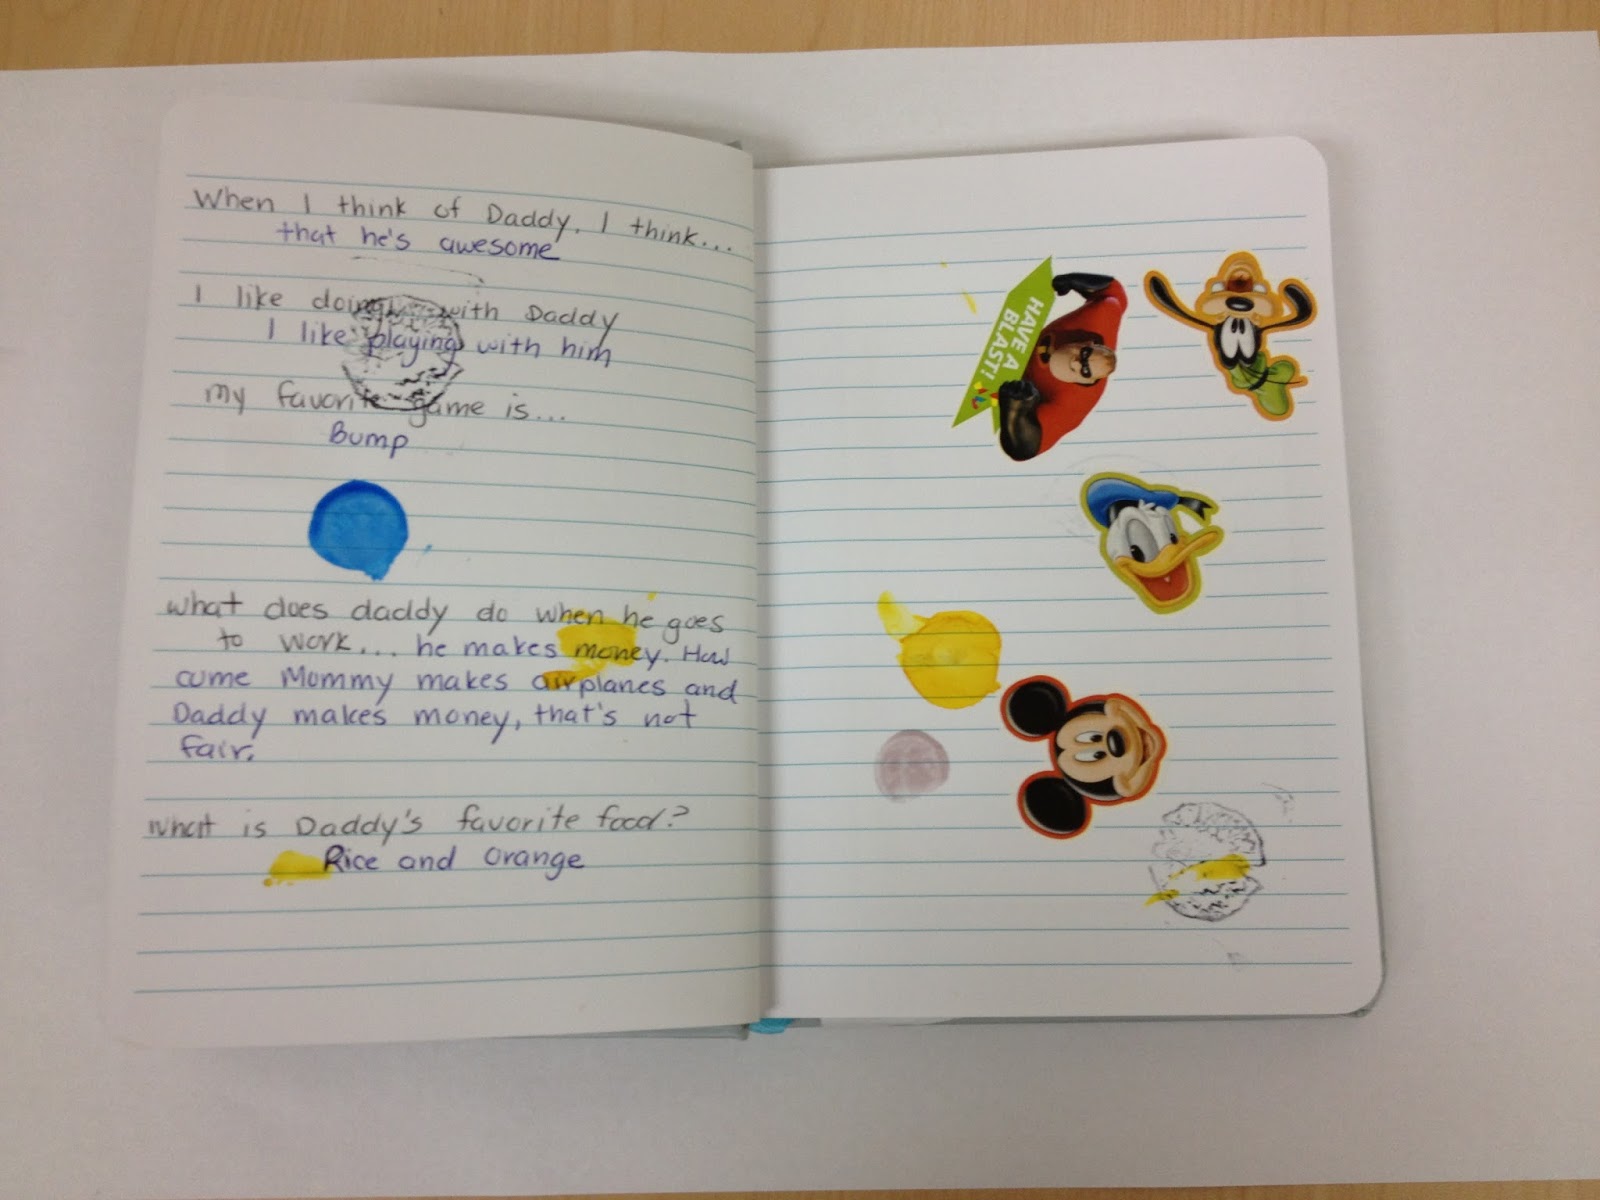 When I think of Daddy, I think...
that he's awesome
I like doing with Daddy
I like playing with him
my favorite game is...
Bump
what does daddy do when he goes
to work... he makes money. How
come Mommy makes airplanes and
Daddy makes money, that's not
fair.
What is Daddy's favorite food?
Rice and orange
HAVE A
BLAST!